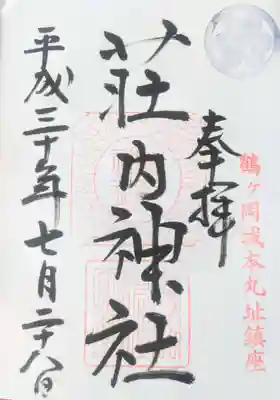 鶴ヶ岡城本丸址鎮座
奉拝
荘内神社
平成三十年七月二十八日